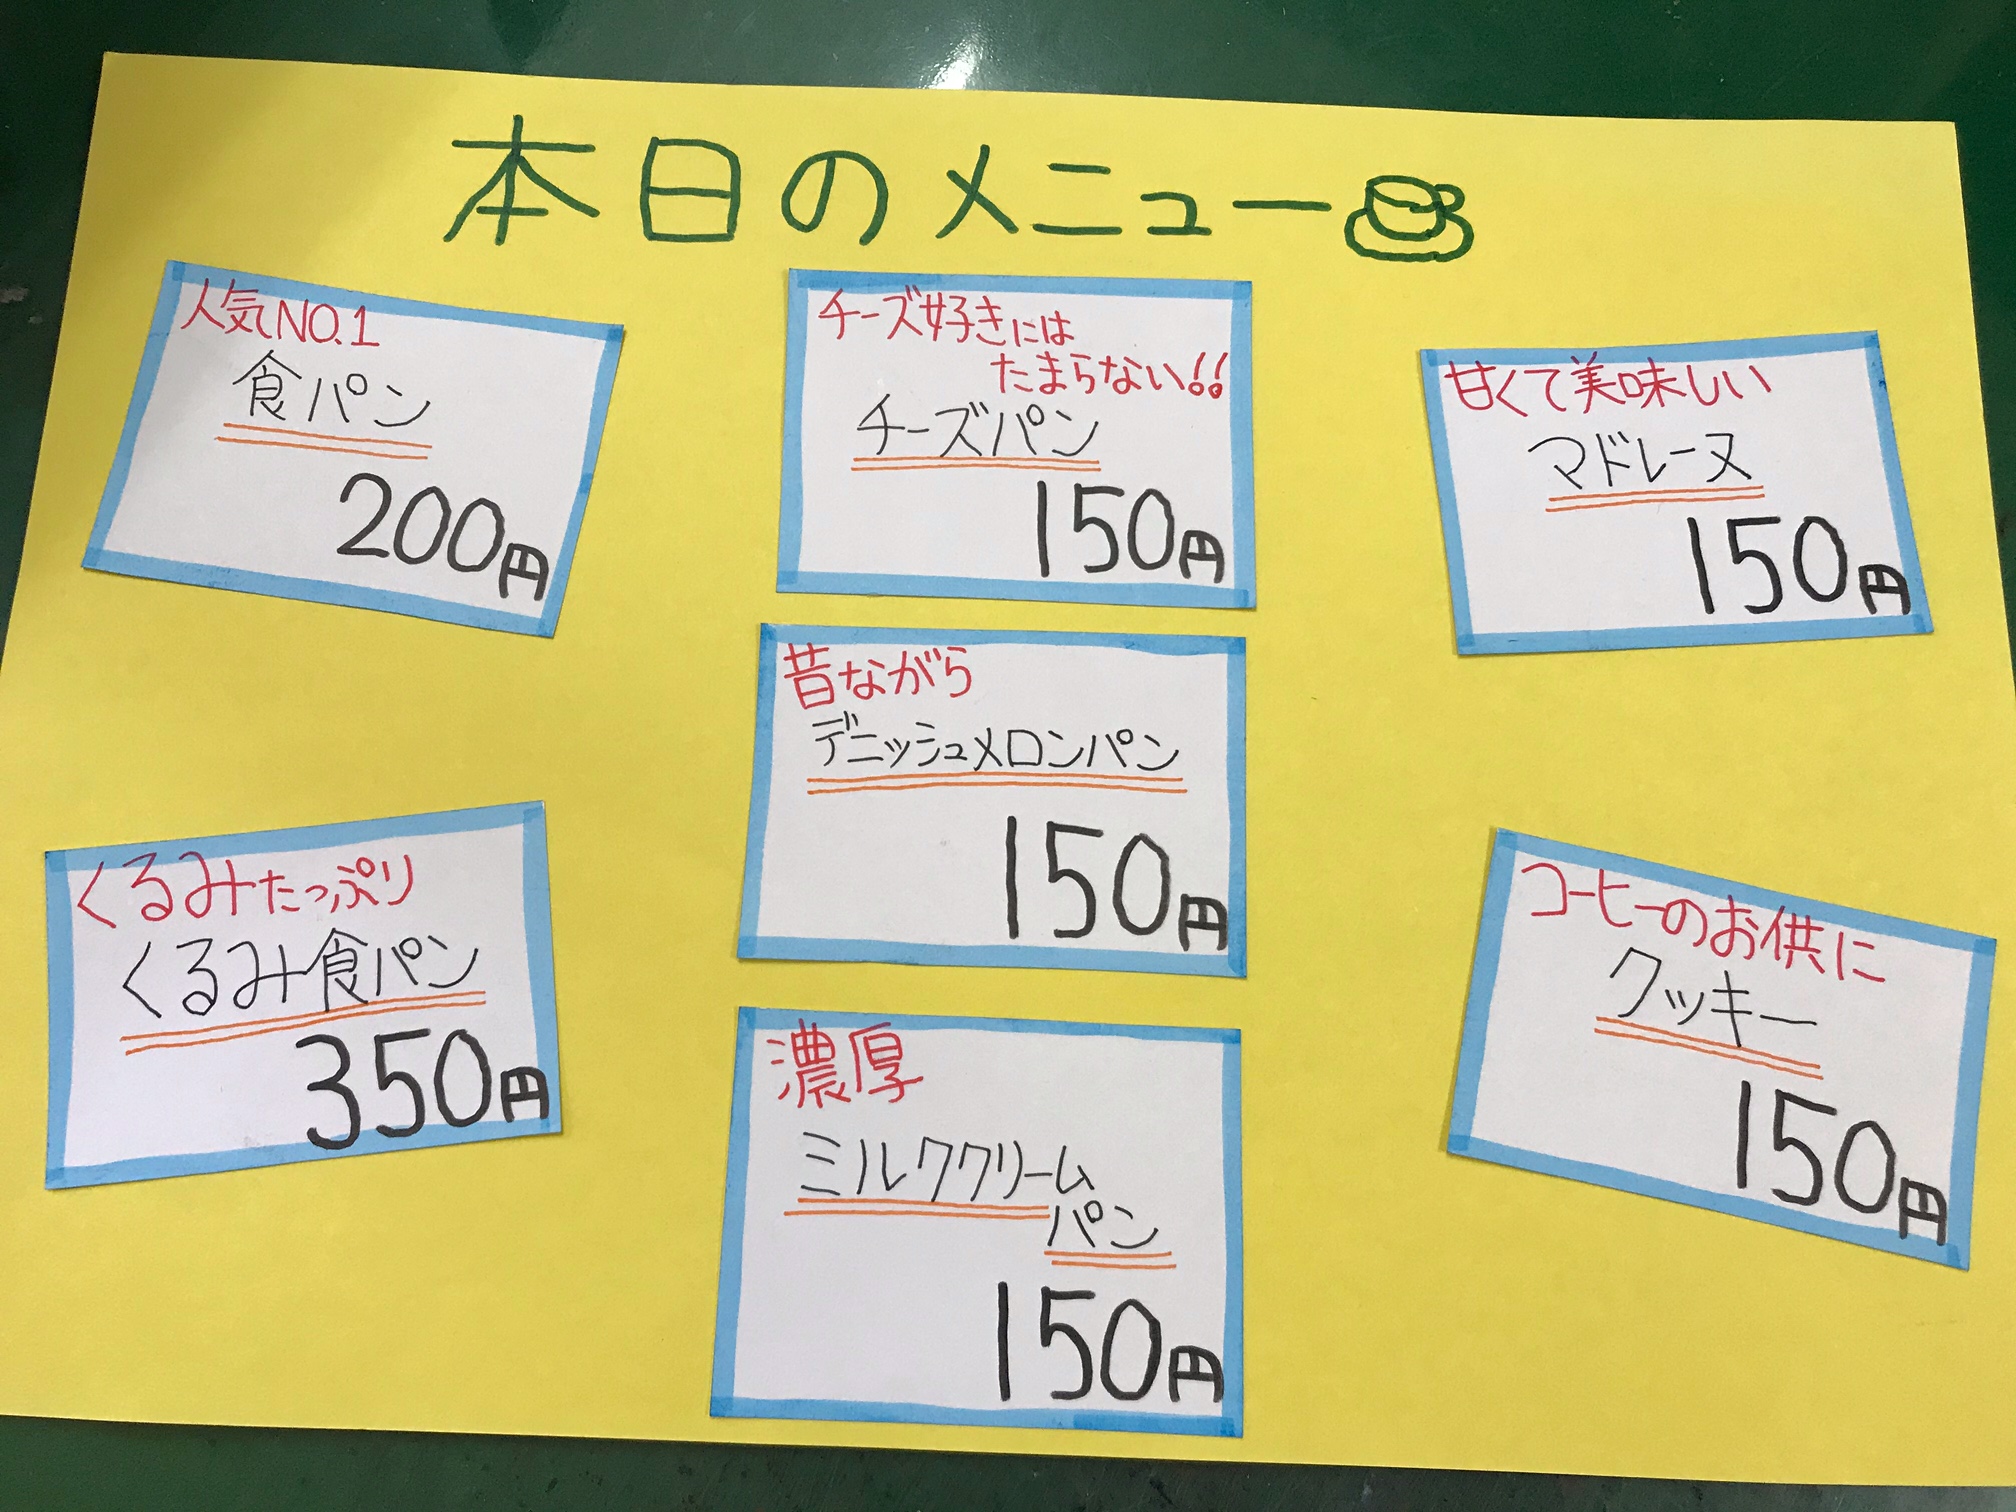 本日のメニュー
人気NO.1
食パン
200円
チーズ好きには
たまらない!!
チーズパン
150円
甘くて美味しい
マドレーヌ
150円
昔ながら
デニッシュメロンパン
150円
くるみたっぷり
くるみ食パン
350円
濃厚
ミルククリーム
パン
150円
コーヒーのお供に
クッキー
150円